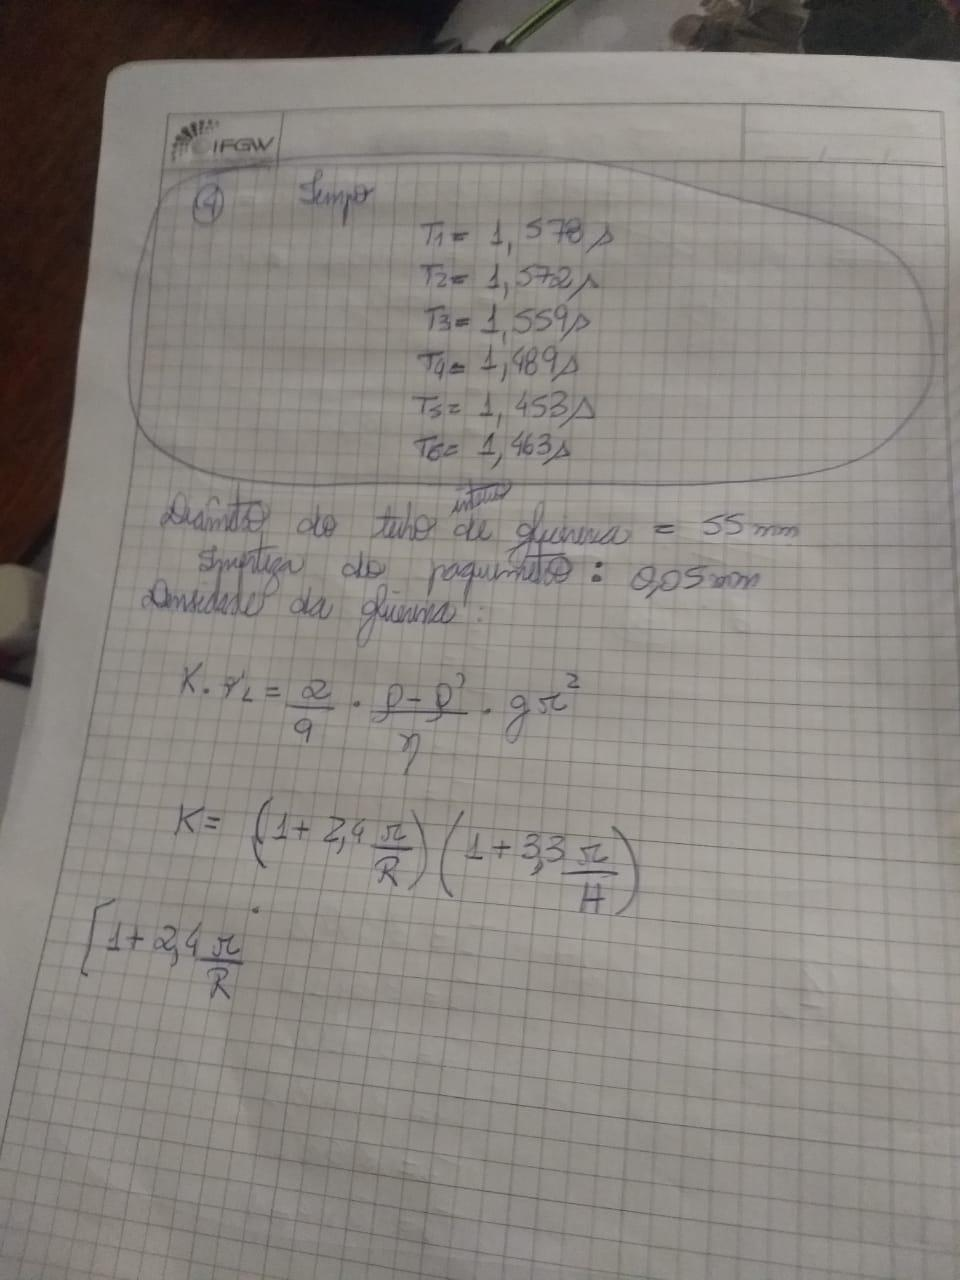 IFGW
④ Tempo
T1 = 1,578s
T2 = 1,572s
T3 = 1,559s
T4 = 1,489s
T5 = 1,453s
T6 = 1,463s
interno
Diâmetro do tubo de glicerina = 55 mm
do paquímetro : 0,05 mm
Densidade da glicerina :
= 2/9 · ρ-ρ'/η · g r²
K = (1 + 2,4 r/R) (1 + 3,3 r/H)
[1 + 2,4 r/R